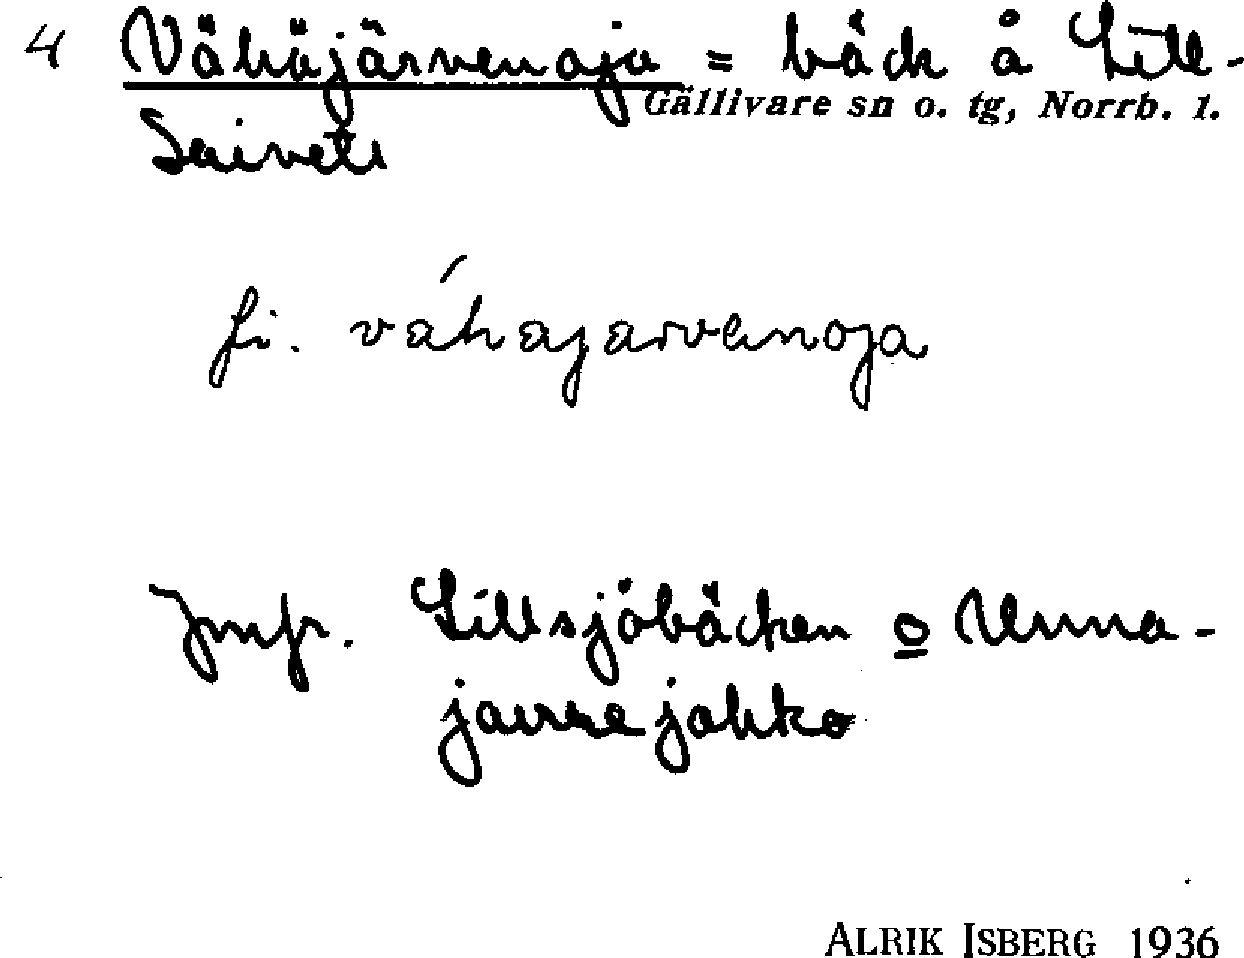 4 Vähäjärvenoja = bäck å Lill-
Gällivare sn o. tg, Norrb. l.
Saivets
fi. váhajarvenoja
Jmfr. Lillsjöbäcken o Unna-
jaurejohko
ALRIK ISBERG 1936